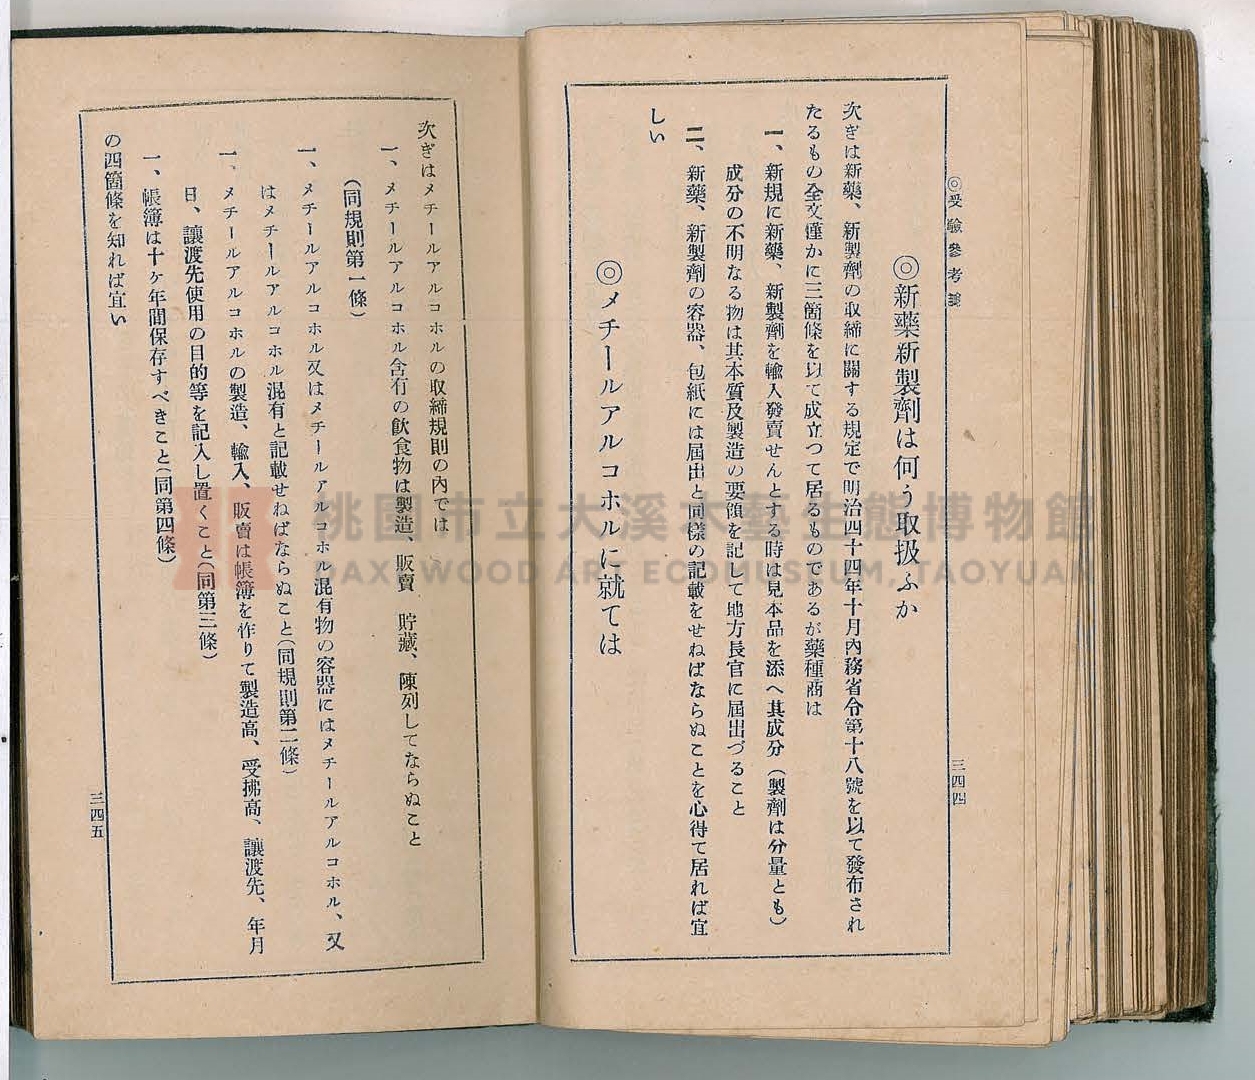 ◎受驗參考談
三四四
◎新藥新製劑は何う取扱ふか
次ぎは新藥、新製劑の取締に關する規定で明治四十四年十月內務省令第十八號を以て發布され
たるもの全文僅かに三箇條を以て成立つて居るものであるが藥種商は
一、新規に新藥、新製劑を輸入發賣せんとする時は見本品を添へ其成分（製劑は分量とも）
成分の不明なる物は其本質及製造の要領を記して地方長官に屆出づること
二、新藥、新製劑の容器、包紙には屆出と同樣の記載をせねばならぬことを心得て居れば宜
しい
◎メチールアルコホルに就ては
次ぎはメチールアルコホルの取締規則の內では
一、メチールアルコホル含有の飮食物は製造、販賣　貯藏、陳列してならぬこと
（同規則第一條）
一、メチールアルコホル又はメチールアルコホル混有物の容器にはメチールアルコホル、又
はメチールアルコホル混有と記載せねばならぬこと（同規則第二條）
一、メチールアルコホルの製造、輸入、販賣は帳簿を作りて製造高、受拂高、讓渡先、年月
日、讓渡先使用の目的等を記入し置くこと（同第三條）
一、帳簿は十ヶ年間保存すべきこと（同第四條）
の四箇條を知れば宜い
三四五
桃園市立大溪木藝生態博物館
DAXI WOOD ART ECOMUSEUM, TAOYUAN